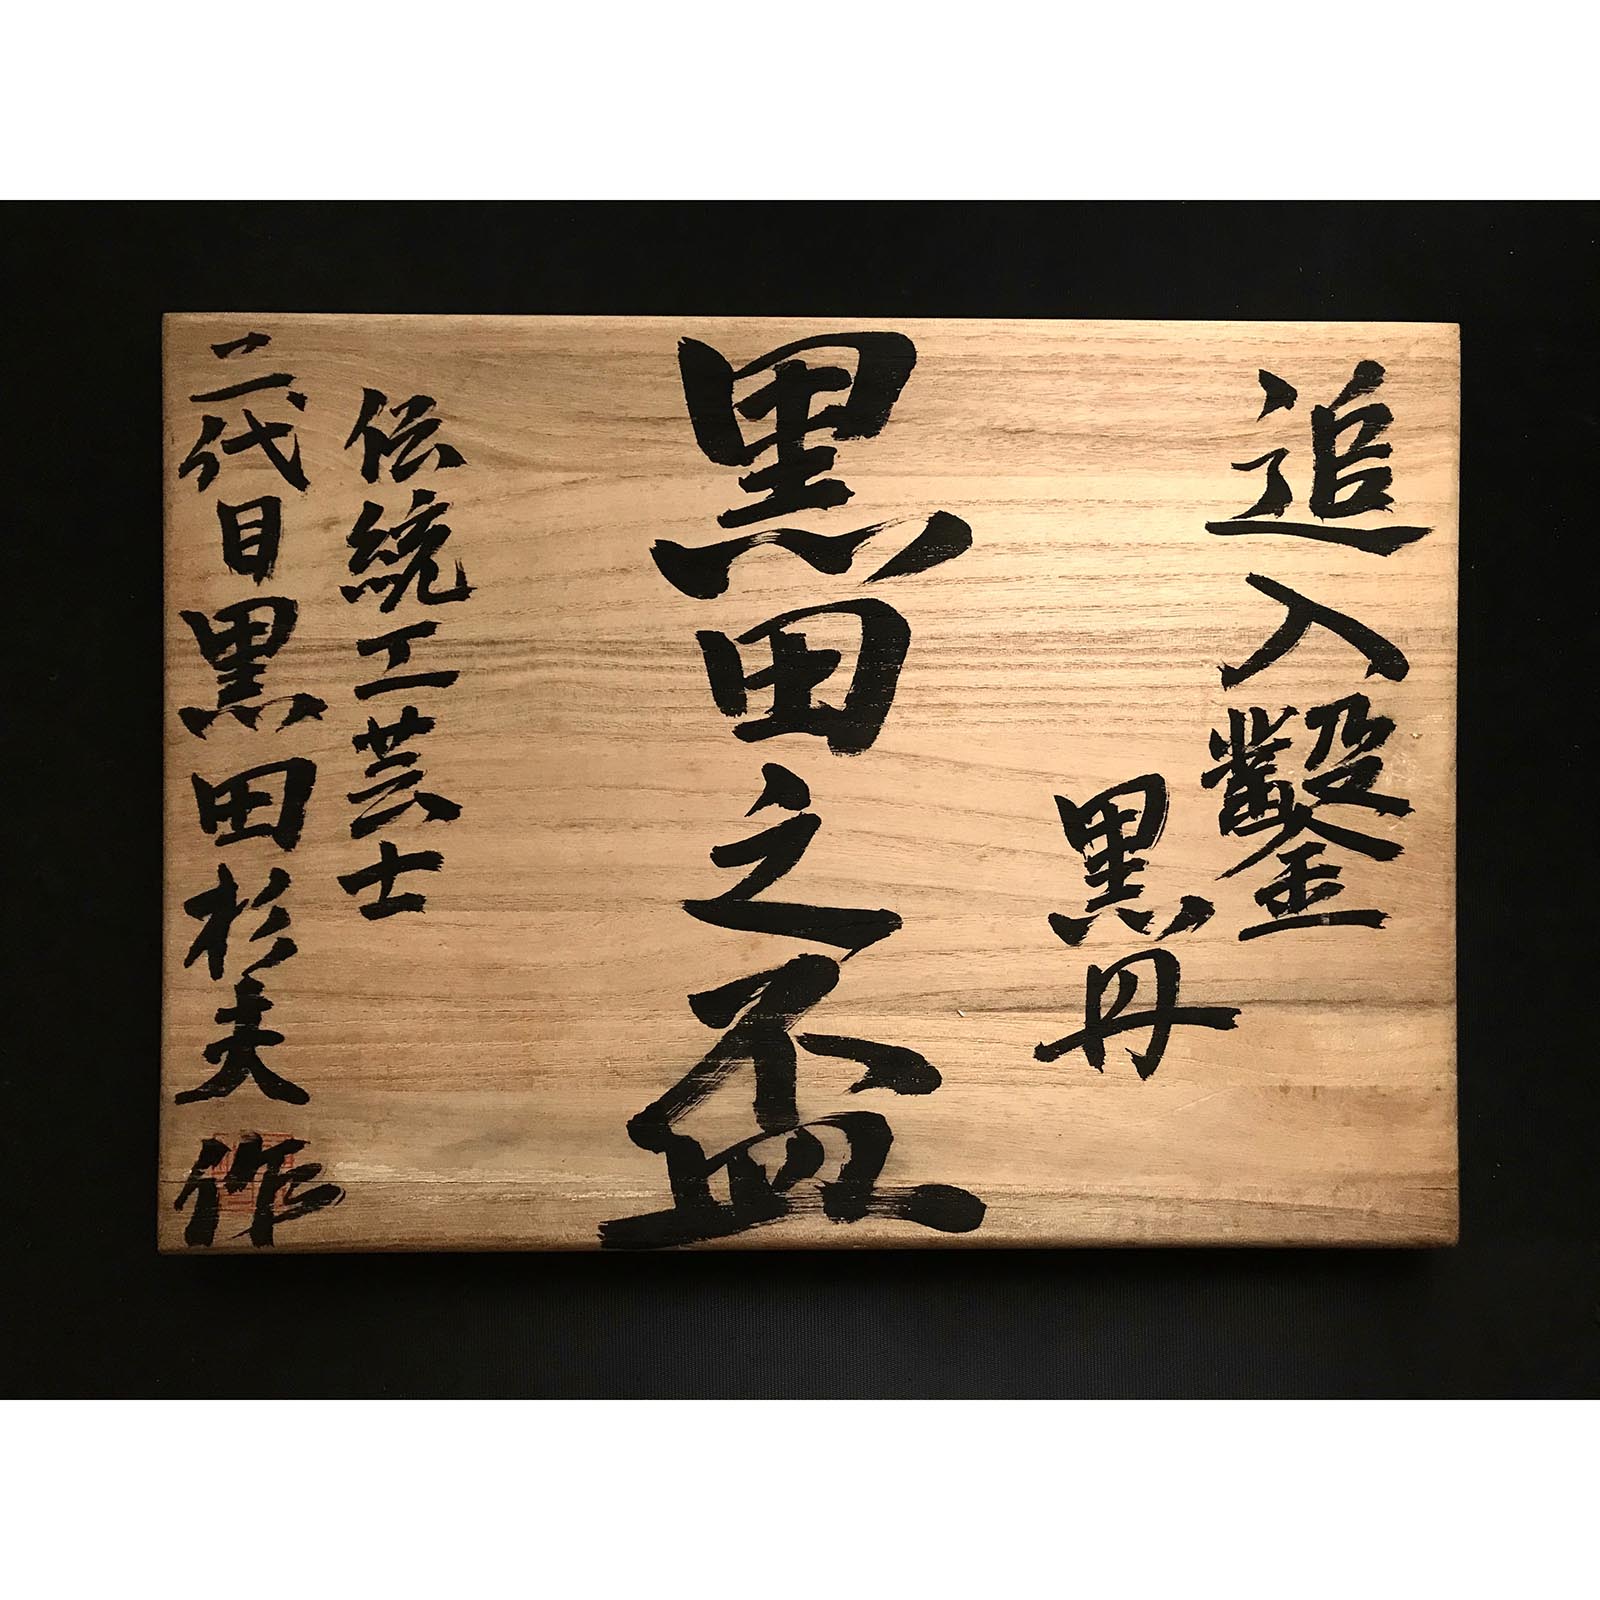 追入鑿
黒丹
黒田之盃
伝統工芸士
二代目黒田杉夫作